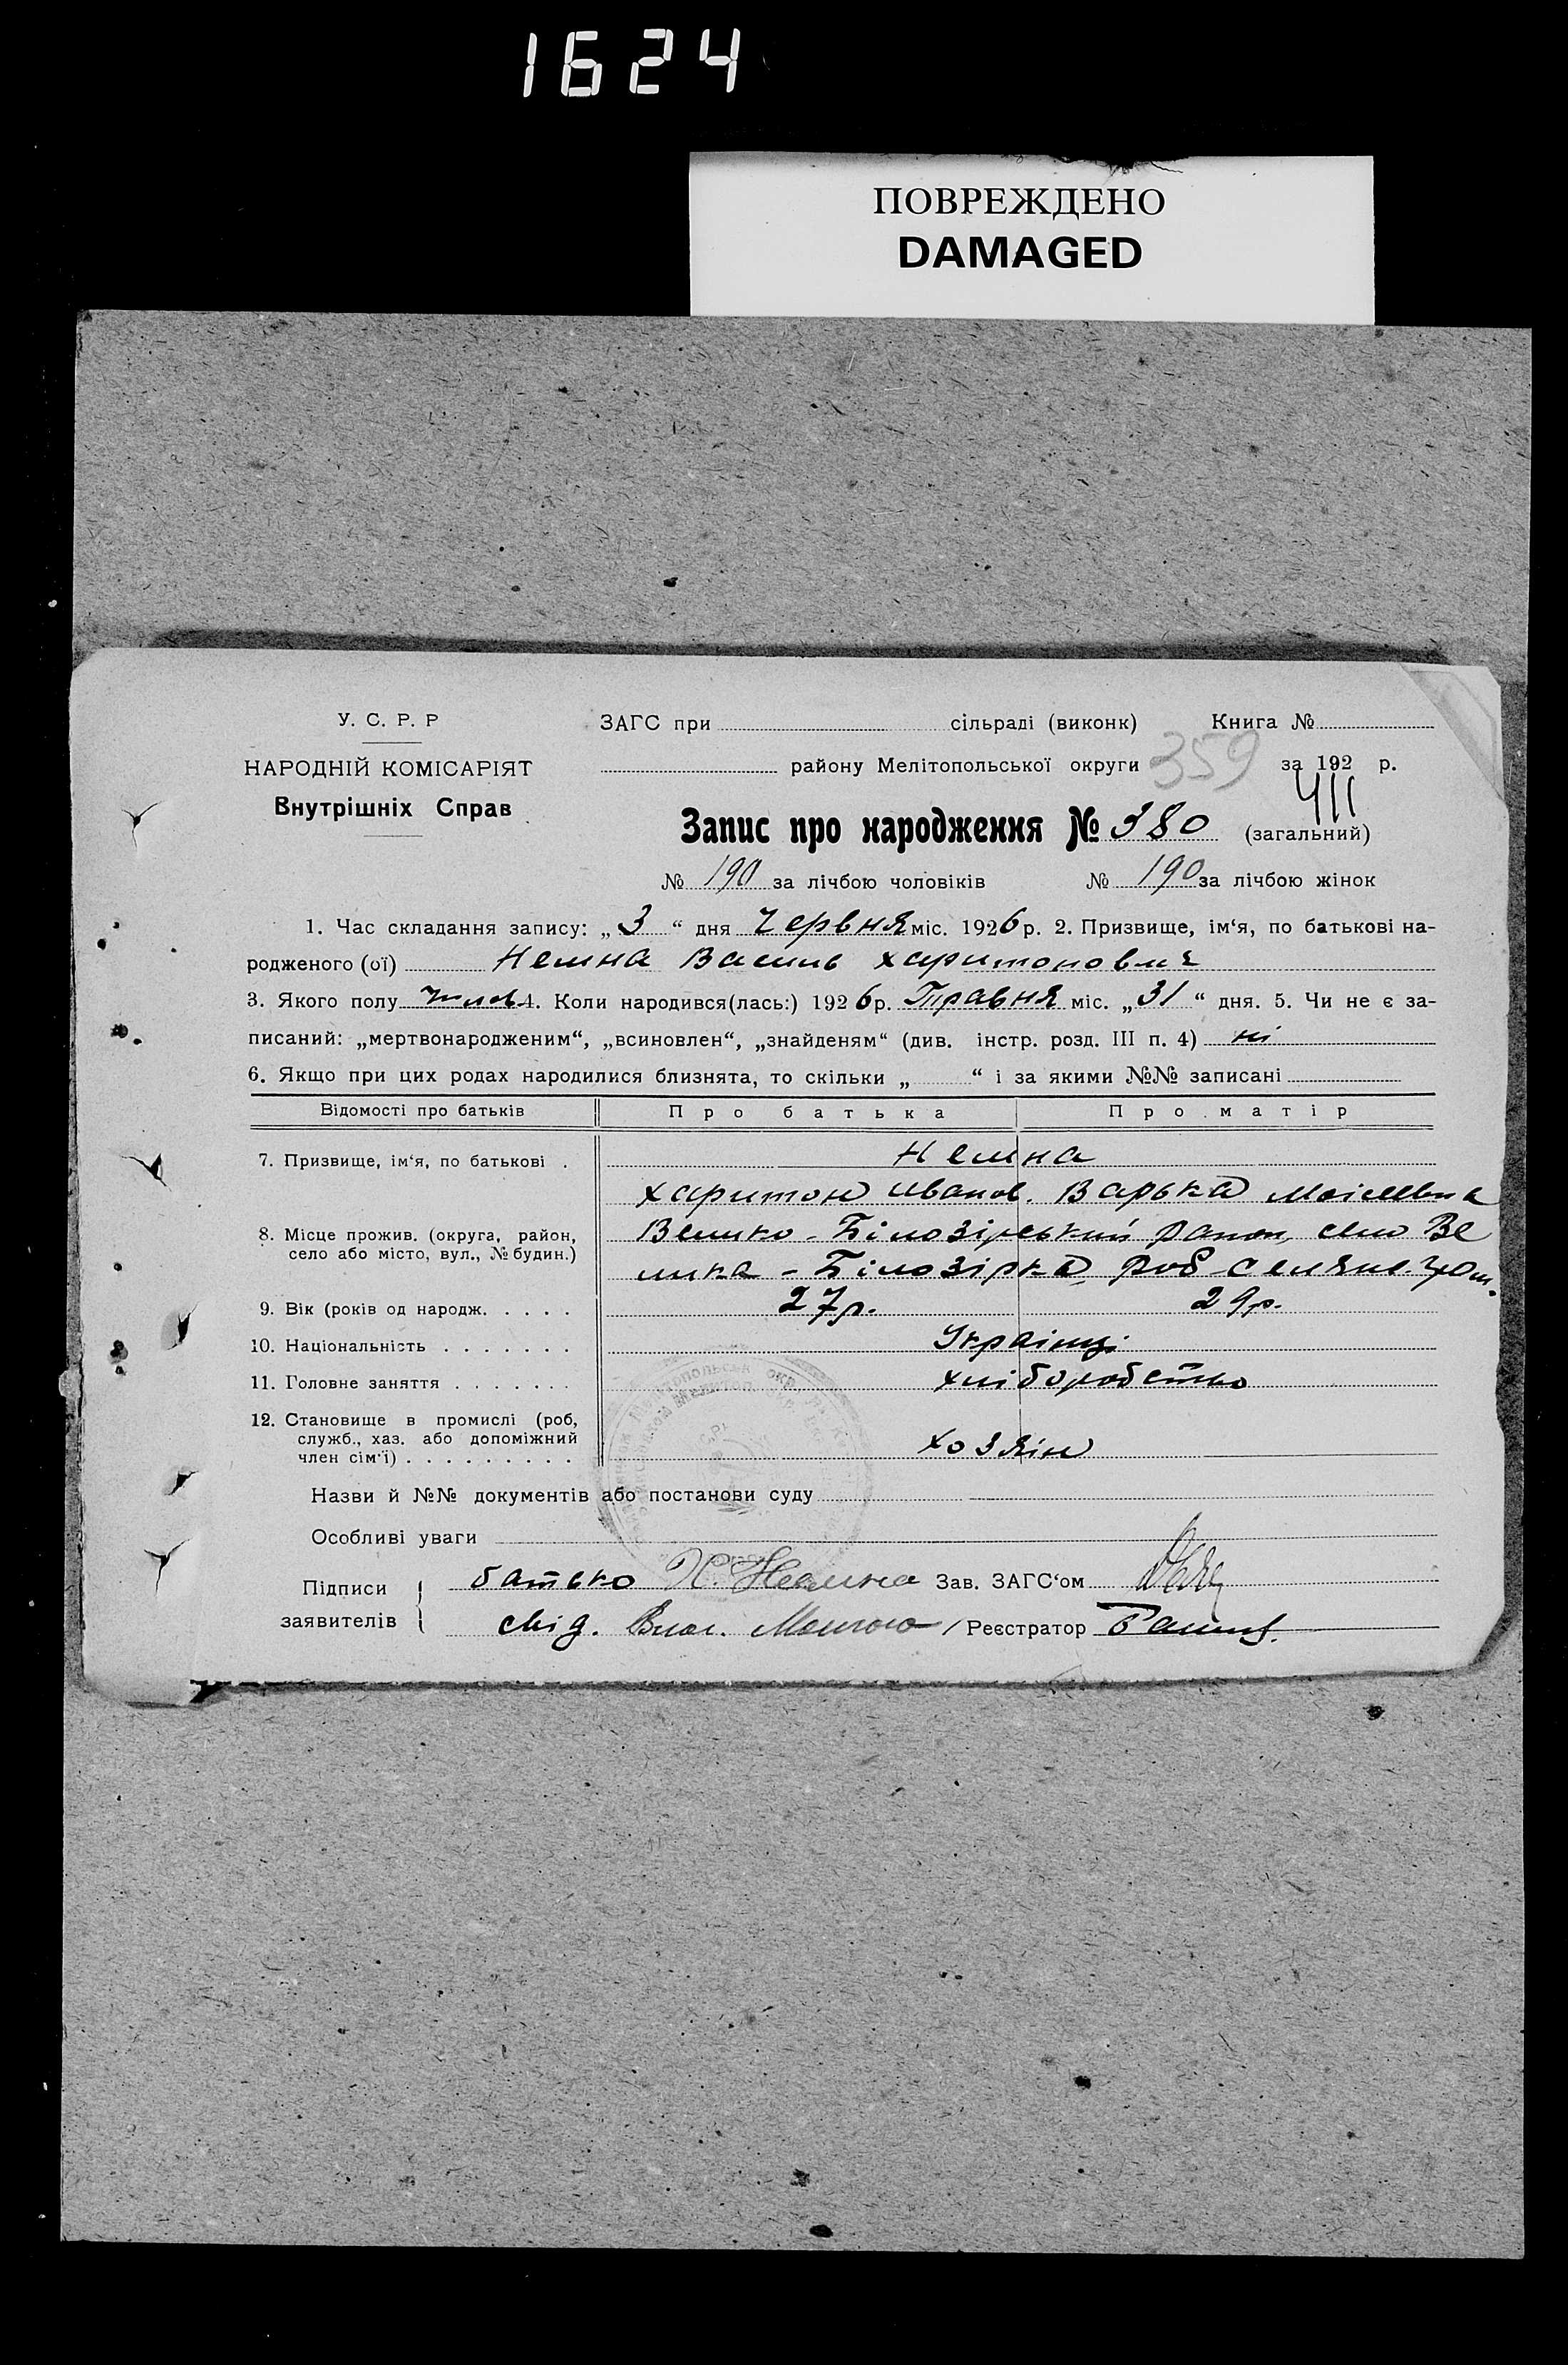 1624
ПОВРЕЖДЕНО
DAMAGED
У. С. Р. Р
НАРОДНІЙ КОМІСАРІЯТ
Внутрішніх Справ
ЗАГС при сільраді (виконк) Книга №
району Мелітопольської округи 359 за 192 р.
411
Запис про народження № 380 (загальний)
№ 190 за лічбою чоловіків № 190 за лічбою жінок
1. Час складання запису: „ 3 “ дня Червня міс. 1926 р. 2. Призвище, ім‘я, по батькові на-
родженого (ої) Немна Василь Харитонович
3. Якого полу 4. Коли народився(лась:) 1926 р. Травня міс. „ 31 “ дня. 5. Чи не є за-
писаний: „мертвонародженим“, „всиновлен“, „знайденям“ (див. інстр. розд. III п. 4) ні
6. Якщо при цих родах народилися близнята, то скільки „ “ і за якими №№ записані
Відомості про батьків Про батька Про матір
7. Призвище, ім‘я, по батькові . Немна
Харитон Иванов. Варька
8. Місце прожив. (округа, район,
село або місто, вул., № будин.)
Велико-Білозірський район, село Ве
лика-Білозірка
9. Вік (років од народж. . . . . 27 р. 29 р.
10. Національність . . . . . . . Українці
11. Головне заняття . . . . . . . хліборобство
12. Становище в промислі (роб,
служб., хаз. або допоміжний
член сім‘ї) . . . . . . . . . хозяін
Назви й №№ документів або постанови суду
Особливі уваги
Підписи заявителів
батько Х. Немна Зав. ЗАГС‘ом
свід. Реєстратор